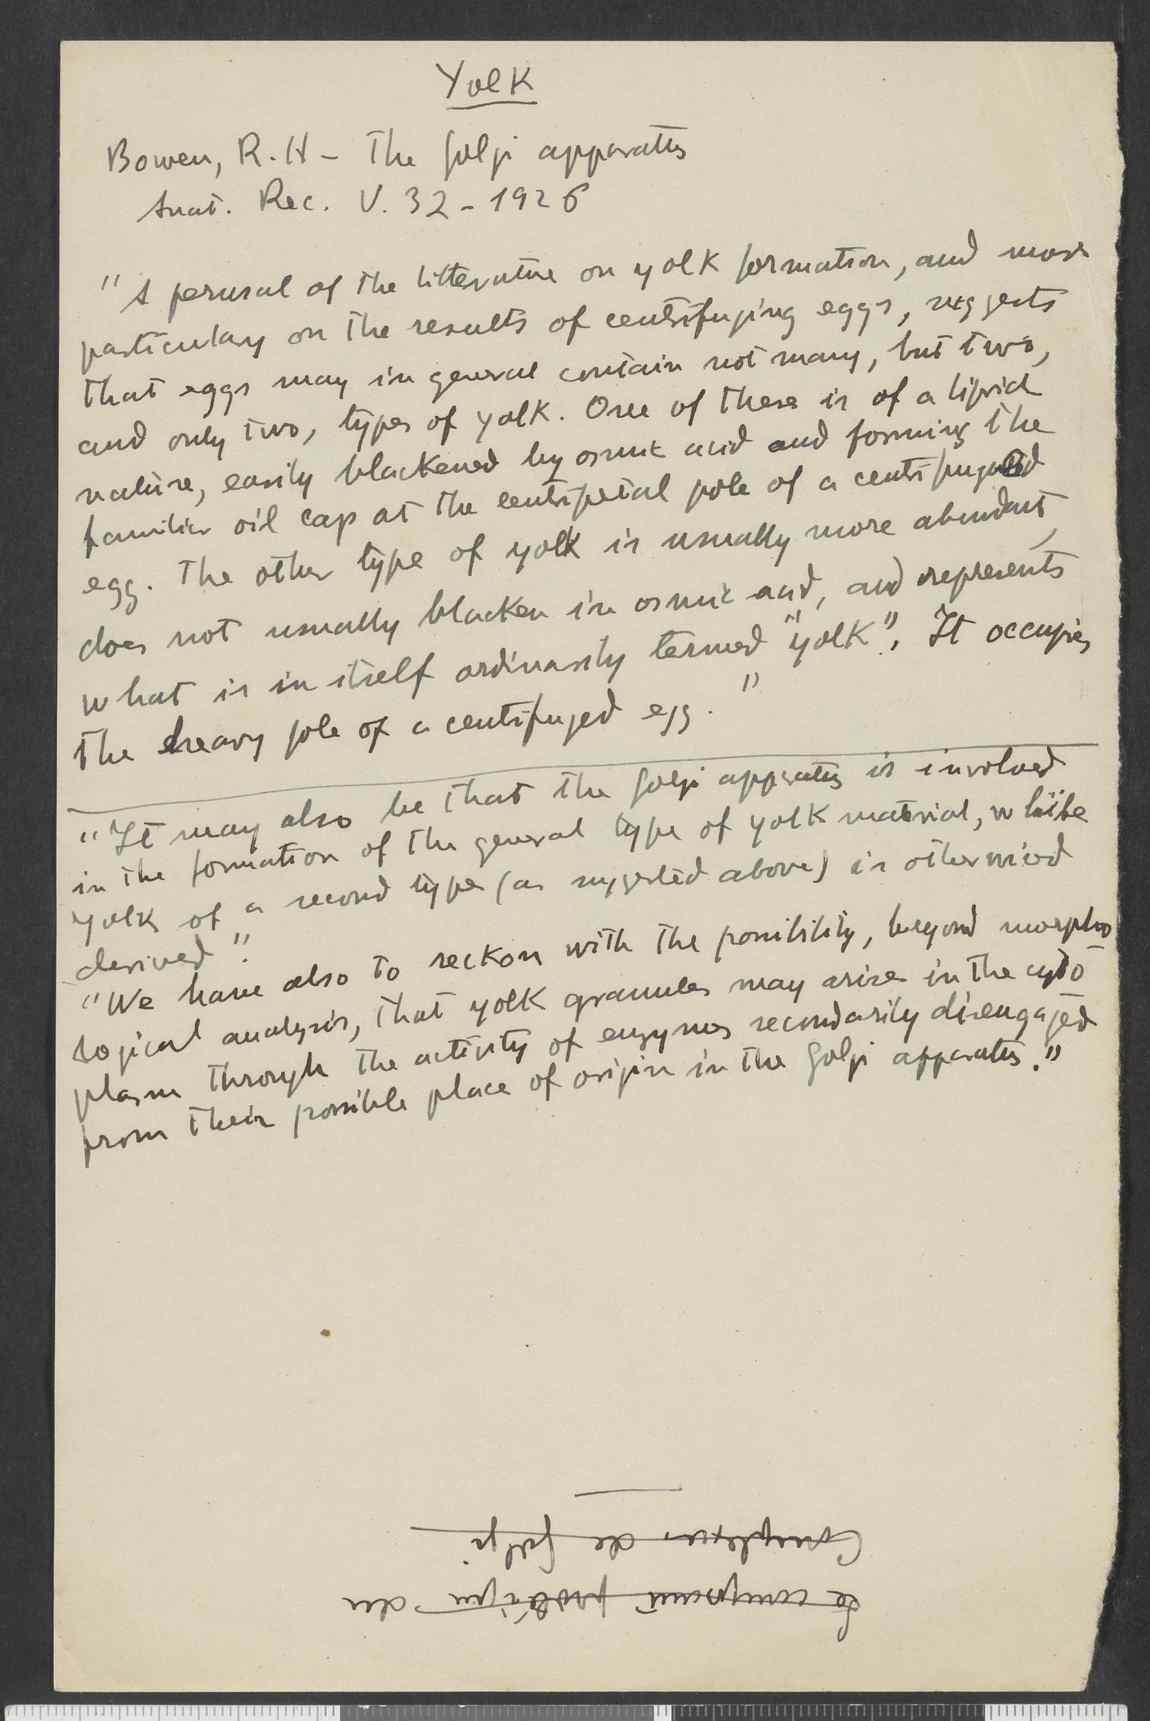 Yolk
Bowen, R.H - The Golgi apparatus
Anat. Rec. V. 32 - 1926
"A perusal of the litterature on yolk formation, and more
particulary on the results of centrifuging eggs, suggests
that eggs may in general contain not many, but two,
and only two, types of yolk. One of these is of a lipoid
nature, easily blackened by osmic acid and forming the
familier oil cap at the centripetal pole of a centrifuged
egg. The other type of yolk is usually more abundant,
does not usually blacken in osmic acid, and represents
what is in itself ordinarily termed "yolk". It occupies
the heavy pole of a centrifuged egg."
"It may also be that the Golgi apparatus is involved
in the formation of the general type of yolk material, while
yolk of a second type (as suggested above) is otherwised
derived".
"We have also to reckon with the possibility, beyond morpho
logical analysis, that yolk granules may arise in the cyto
plasm through the activity of enzymes secondarily disengaged
from their possible place of origin in the Golgi apparatus."
Le composant protéique du
Complexe de Golgi